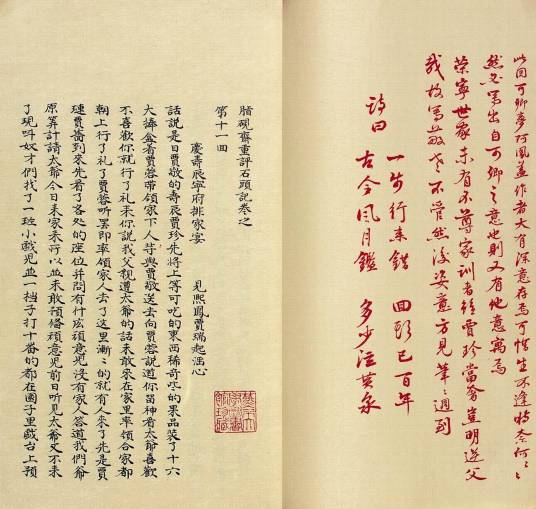 此回可卿夢阿鳳蓋作者大有深意存焉可惜生不逢時奈何〻〻
然必寫出自可卿之意也則又有他意寓焉
榮寧世家未有不尊家訓者雖賈珍當奢豈明逆父
哉故寫敬老不管然後姿意方見筆〻週到
詩曰
一步行來錯　回頭已百年
古今風月鑑　多少泣黃泉
脂硯齋重評石頭記卷之
第十一回
慶壽辰寧府排家宴　見熙鳳賈瑞起淫心
話說是日賈敬的壽辰賈珍先將上等可吃的東西稀奇些的果品装了十六
大捧盒着賈蓉帶領家下人等與賈敬送去向賈蓉說道你留神看太爺喜歡
不喜歡你就行了礼來你說我父親遵太爺的話未敢來在家里率領合家都
朝上行了礼了賈蓉罷即率領家人去了這里漸〻的就有人來了先是賈
璉賈薔到來先看了各處的座位并問有什庅頑意兒没有家人答道我們爺
原算計請太爺今日來家來所以並未敢預俻頑意兒前日听見太爺又不來
了現叫奴才們找了一班小戲兒並一档子打十番的都在園子里戲台上預